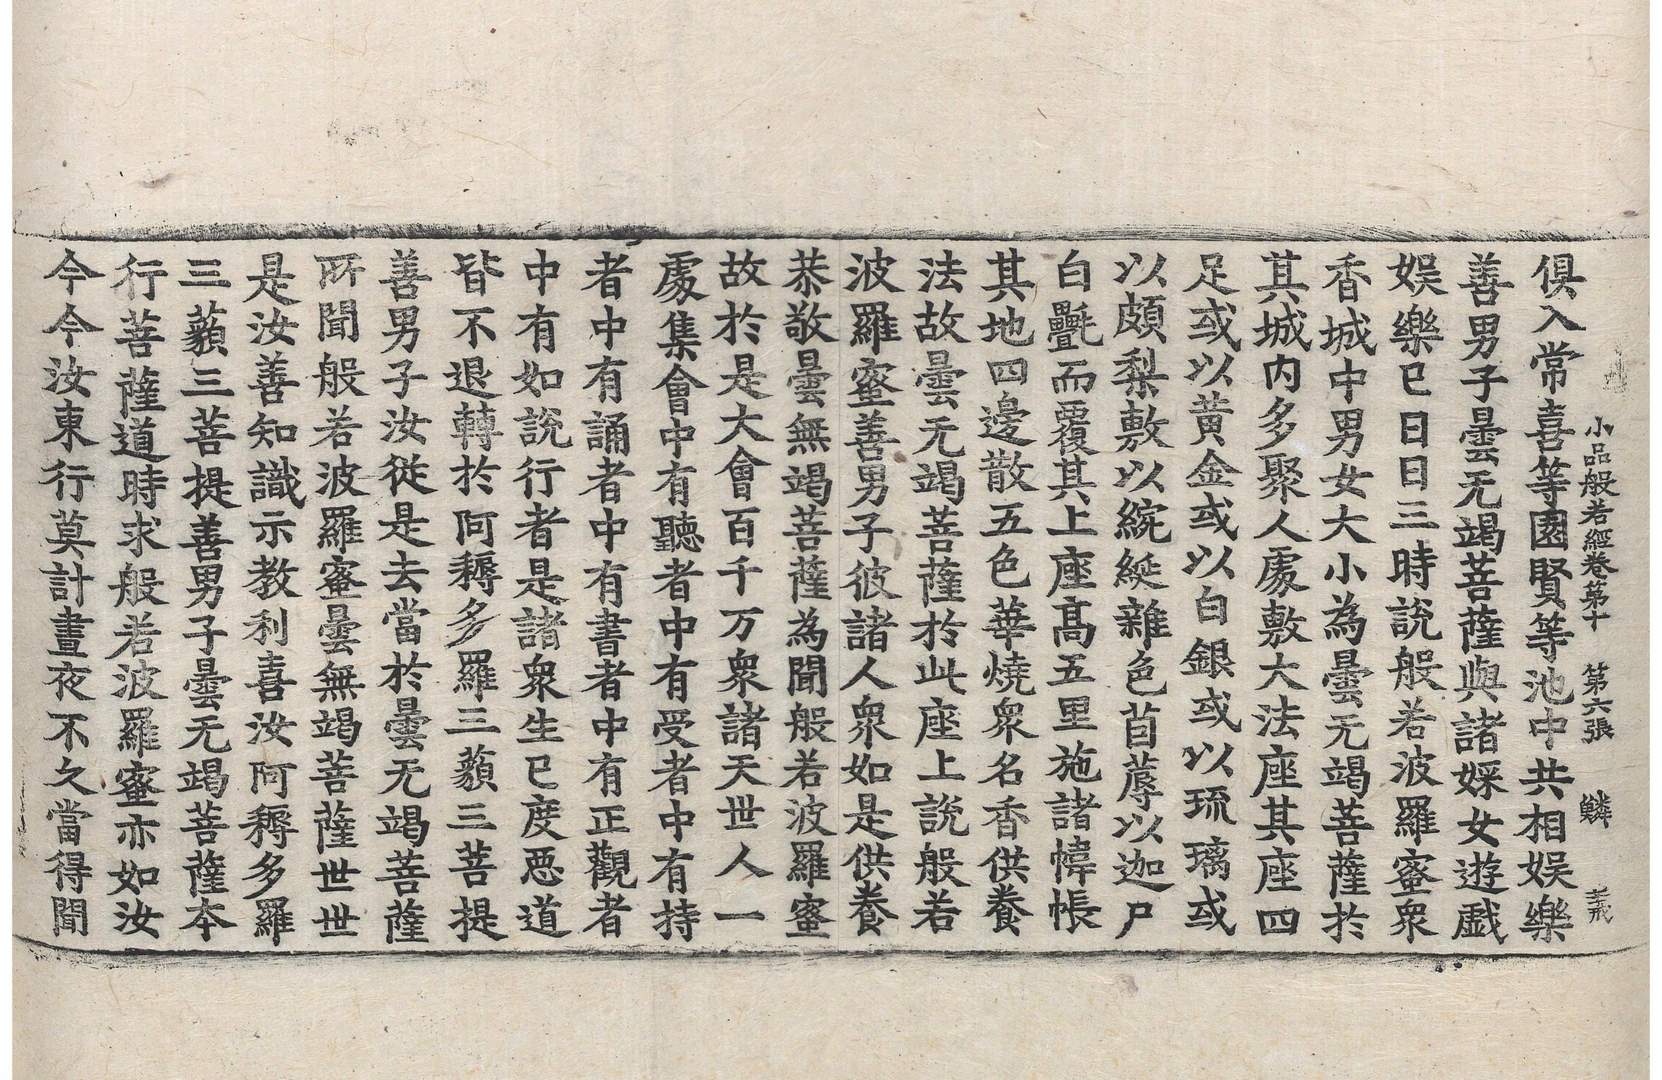 小品般若經卷第十 第六張 鱗
俱入常喜等園賢等池中共相娛樂
善男子曇无竭菩薩與諸婇女遊戯
娛樂已日日三時說般若波羅蜜衆
香城中男女大小為曇无竭菩薩於
其城内多聚人處敷大法座其座四
足或以黄金或以白銀或以琉璃或
以頗梨敷以綩綖雜色茵蓐以迦尸
白㲲而覆其上座髙五里施諸幃帳
其地四邊散五色華燒衆名香供養
法故曇无竭菩薩於此座上說般若
波羅蜜善男子彼諸人衆如是供養
恭敬曇無竭菩薩為聞般若波羅蜜
故於是大會百千万衆諸天世人一
處集會中有聽者中有受者中有持
者中有誦者中有書者中有正觀者
中有如說行者是諸衆生已度惡道
皆不退轉於阿耨多羅三藐三菩提
善男子汝從是去當於曇无竭菩薩
所聞般若波羅蜜曇無竭菩薩世世
是汝善知識示教利喜汝阿耨多羅
三藐三菩提善男子曇无竭菩薩本
行菩薩道時求般若波羅蜜亦如汝
今今汝東行莫計晝夜不久當得聞